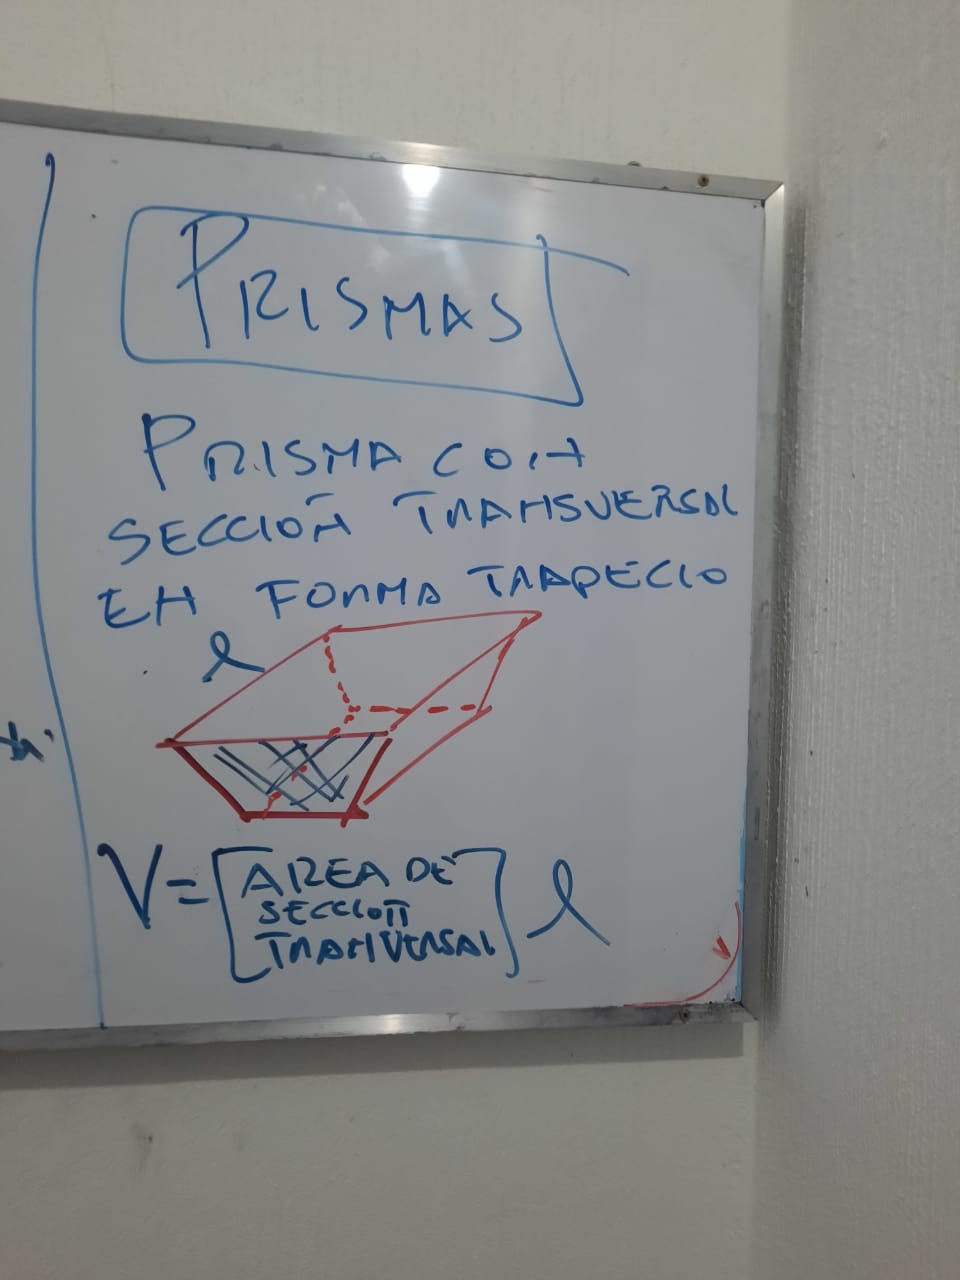 PRISMAS
PRISMA CON
SECCIÓN TRANSVERSAL
EN FORMA TRAPECIO
l
V = [ AREA DE
SECCIÓN
TRANVERSAL ] l